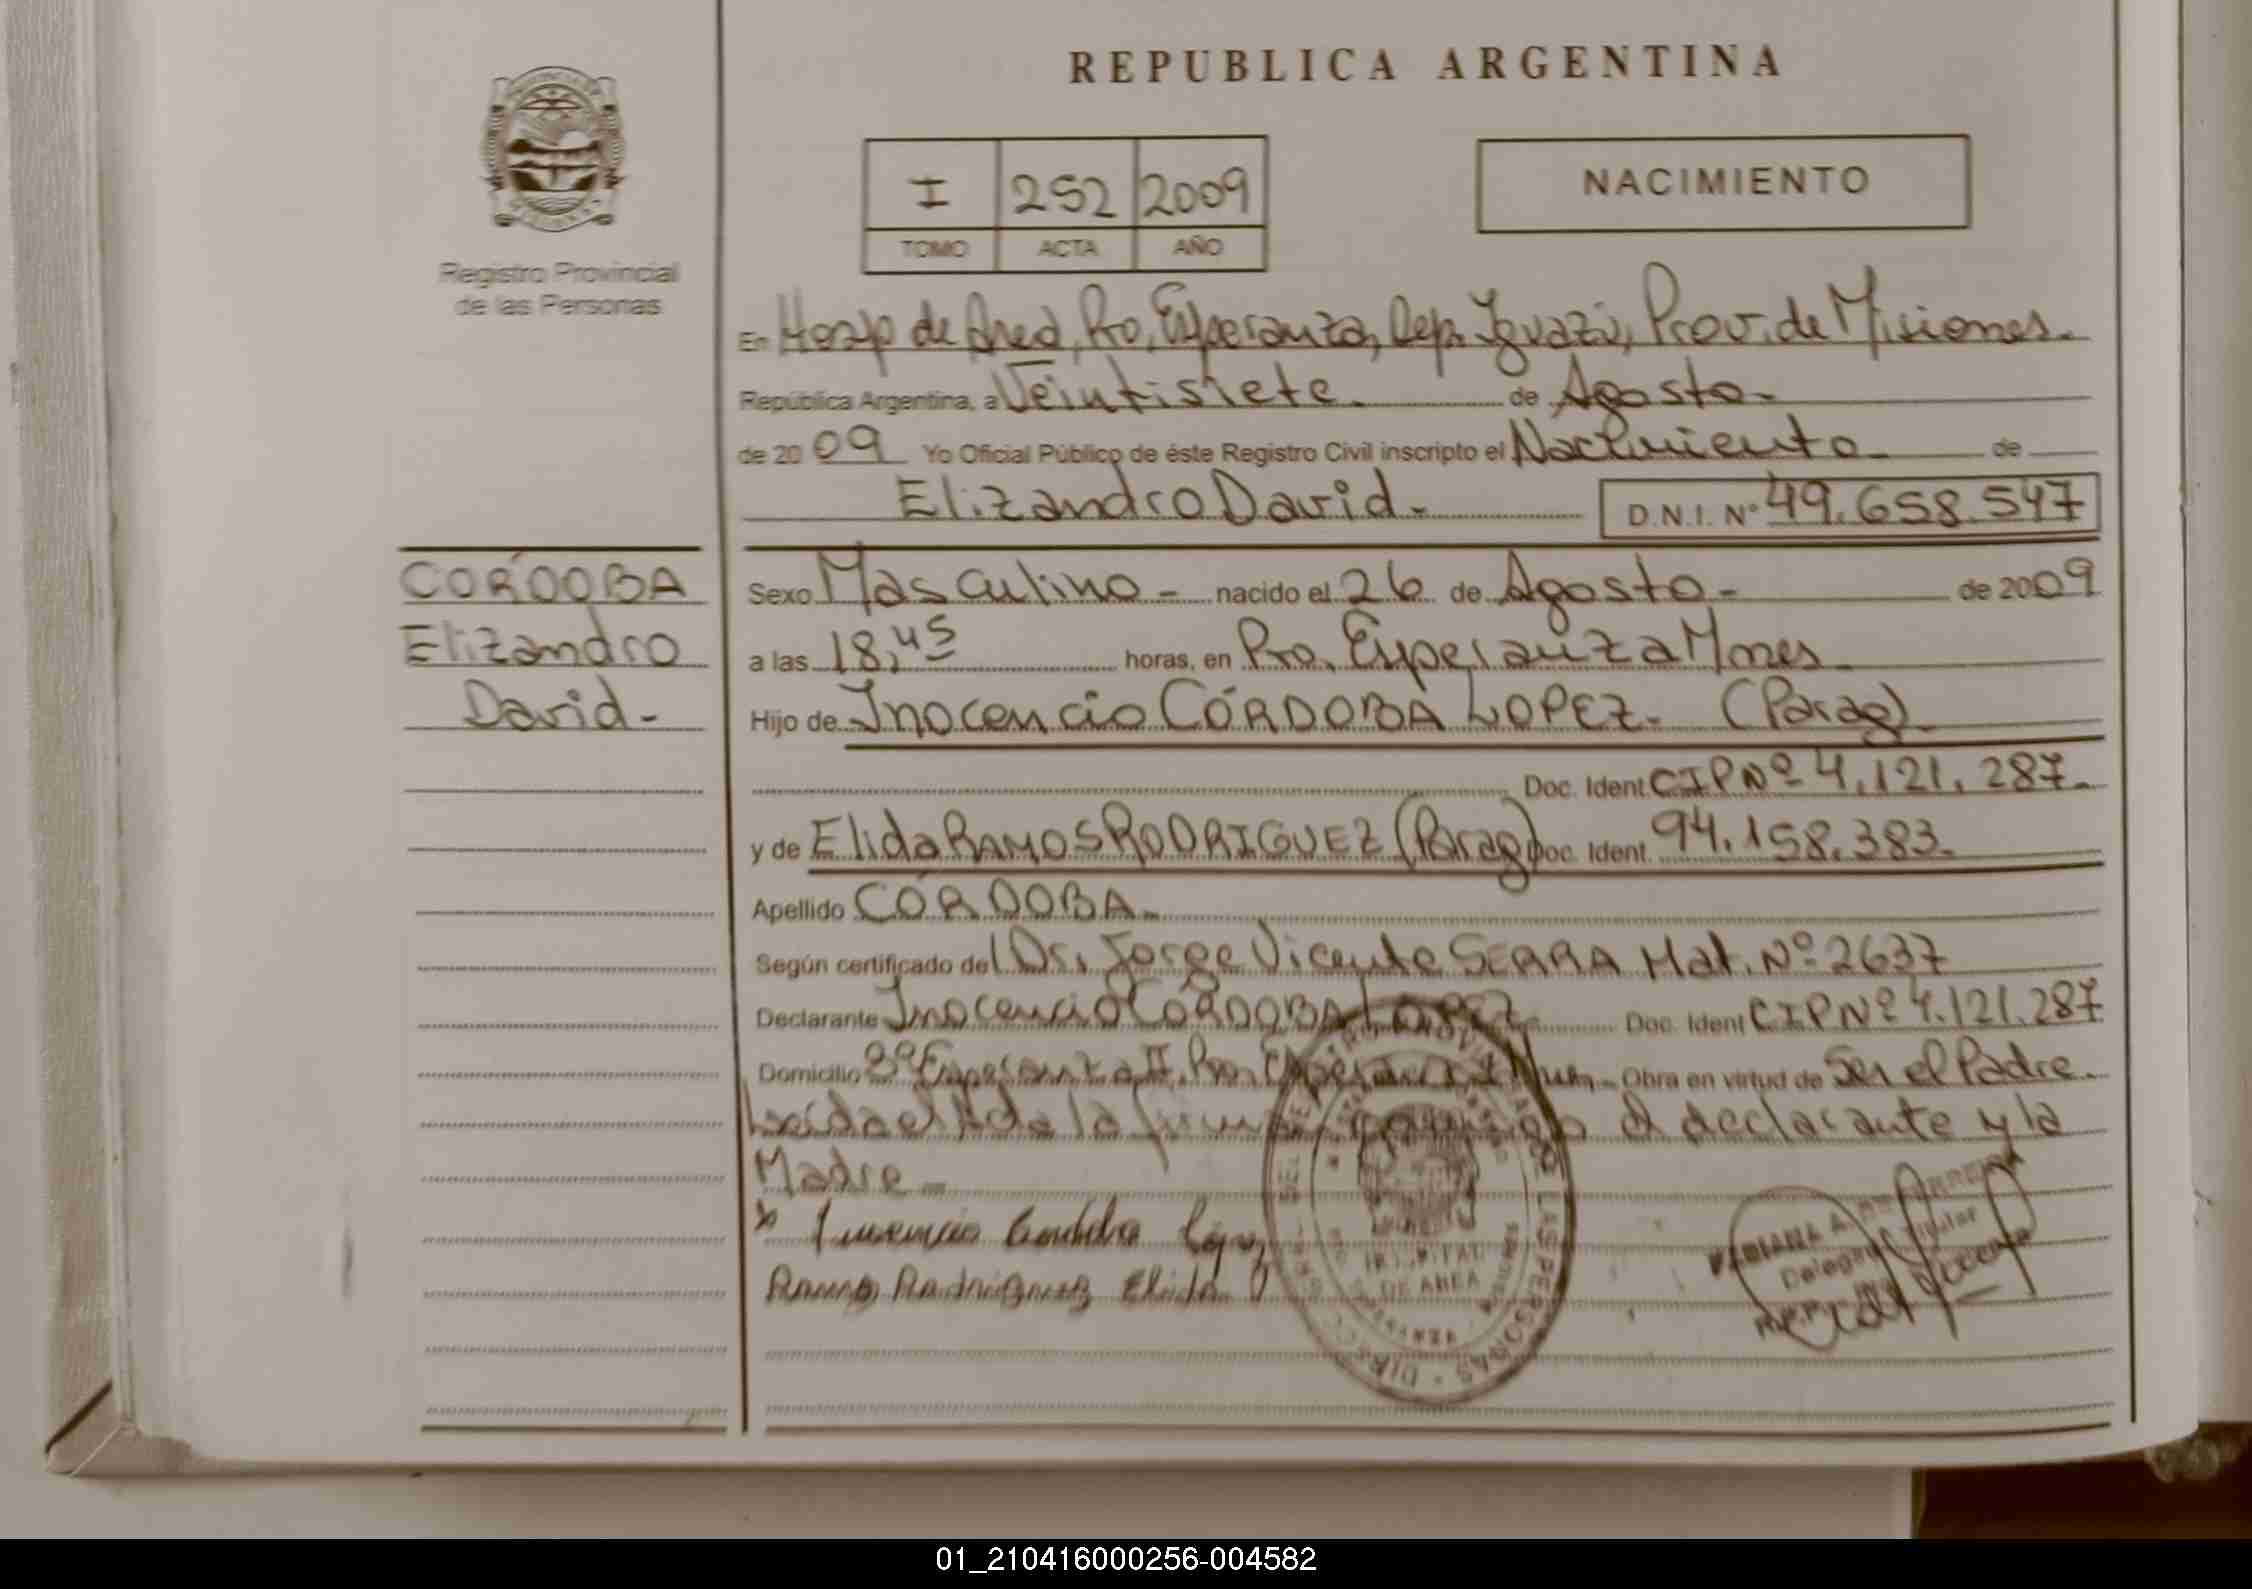 REPUBLICA ARGENTINA
I 252 2009
TOMO ACTA AÑO
NACIMIENTO
Registro Provincial
de las Personas
En Hosp de Area, Pto, Esperanza, Dep. Iguazú, Prov. de Misiones.
República Argentina, a Veintisiete. de Agosto.
de 2009 Yo Oficial Público de éste Registro Civil inscripto el Nacimiento de
Elizandro David. D.N.I. Nº 49.658.547
CORDOBA
Elizandro
David-
Sexo Masculino - nacido el 26 de Agosto - de 2009
a las 18,45 horas, en Pto. Esperanza Mnes
Hijo de Inocencio CÓRDOBA LOPEZ. (Parag)
Doc. Ident CIP Nº 4.121.287.
y de Elida RAMOS RODRIGUEZ (Parag) Doc. Ident. 94.158.383.
Apellido CÓRDOBA.
Según certificado del Dr. Jorge Vicente SERRA Mat. Nº 2637
Declarante Inocencio CÓRDOBA LOPEZ. Doc. Ident CIP Nº 4.121.287
Domicilio Bº Esperanza II, Pto. Esperanza Mnes. Obra en virtud de Ser el Padre.
Leída el Acta la firman conmigo el declarante y la
Madre -
Ramos Rodriguez Elida
HOSPITAL
DE AREA
01_210416000256-004582